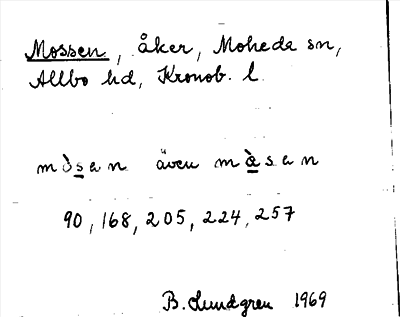 Mossen, åker, Moheda sn,
Allbo hd, Kronob. l.
mòsan även màsan
90, 168, 205, 224, 257
B. Lundgren 1969